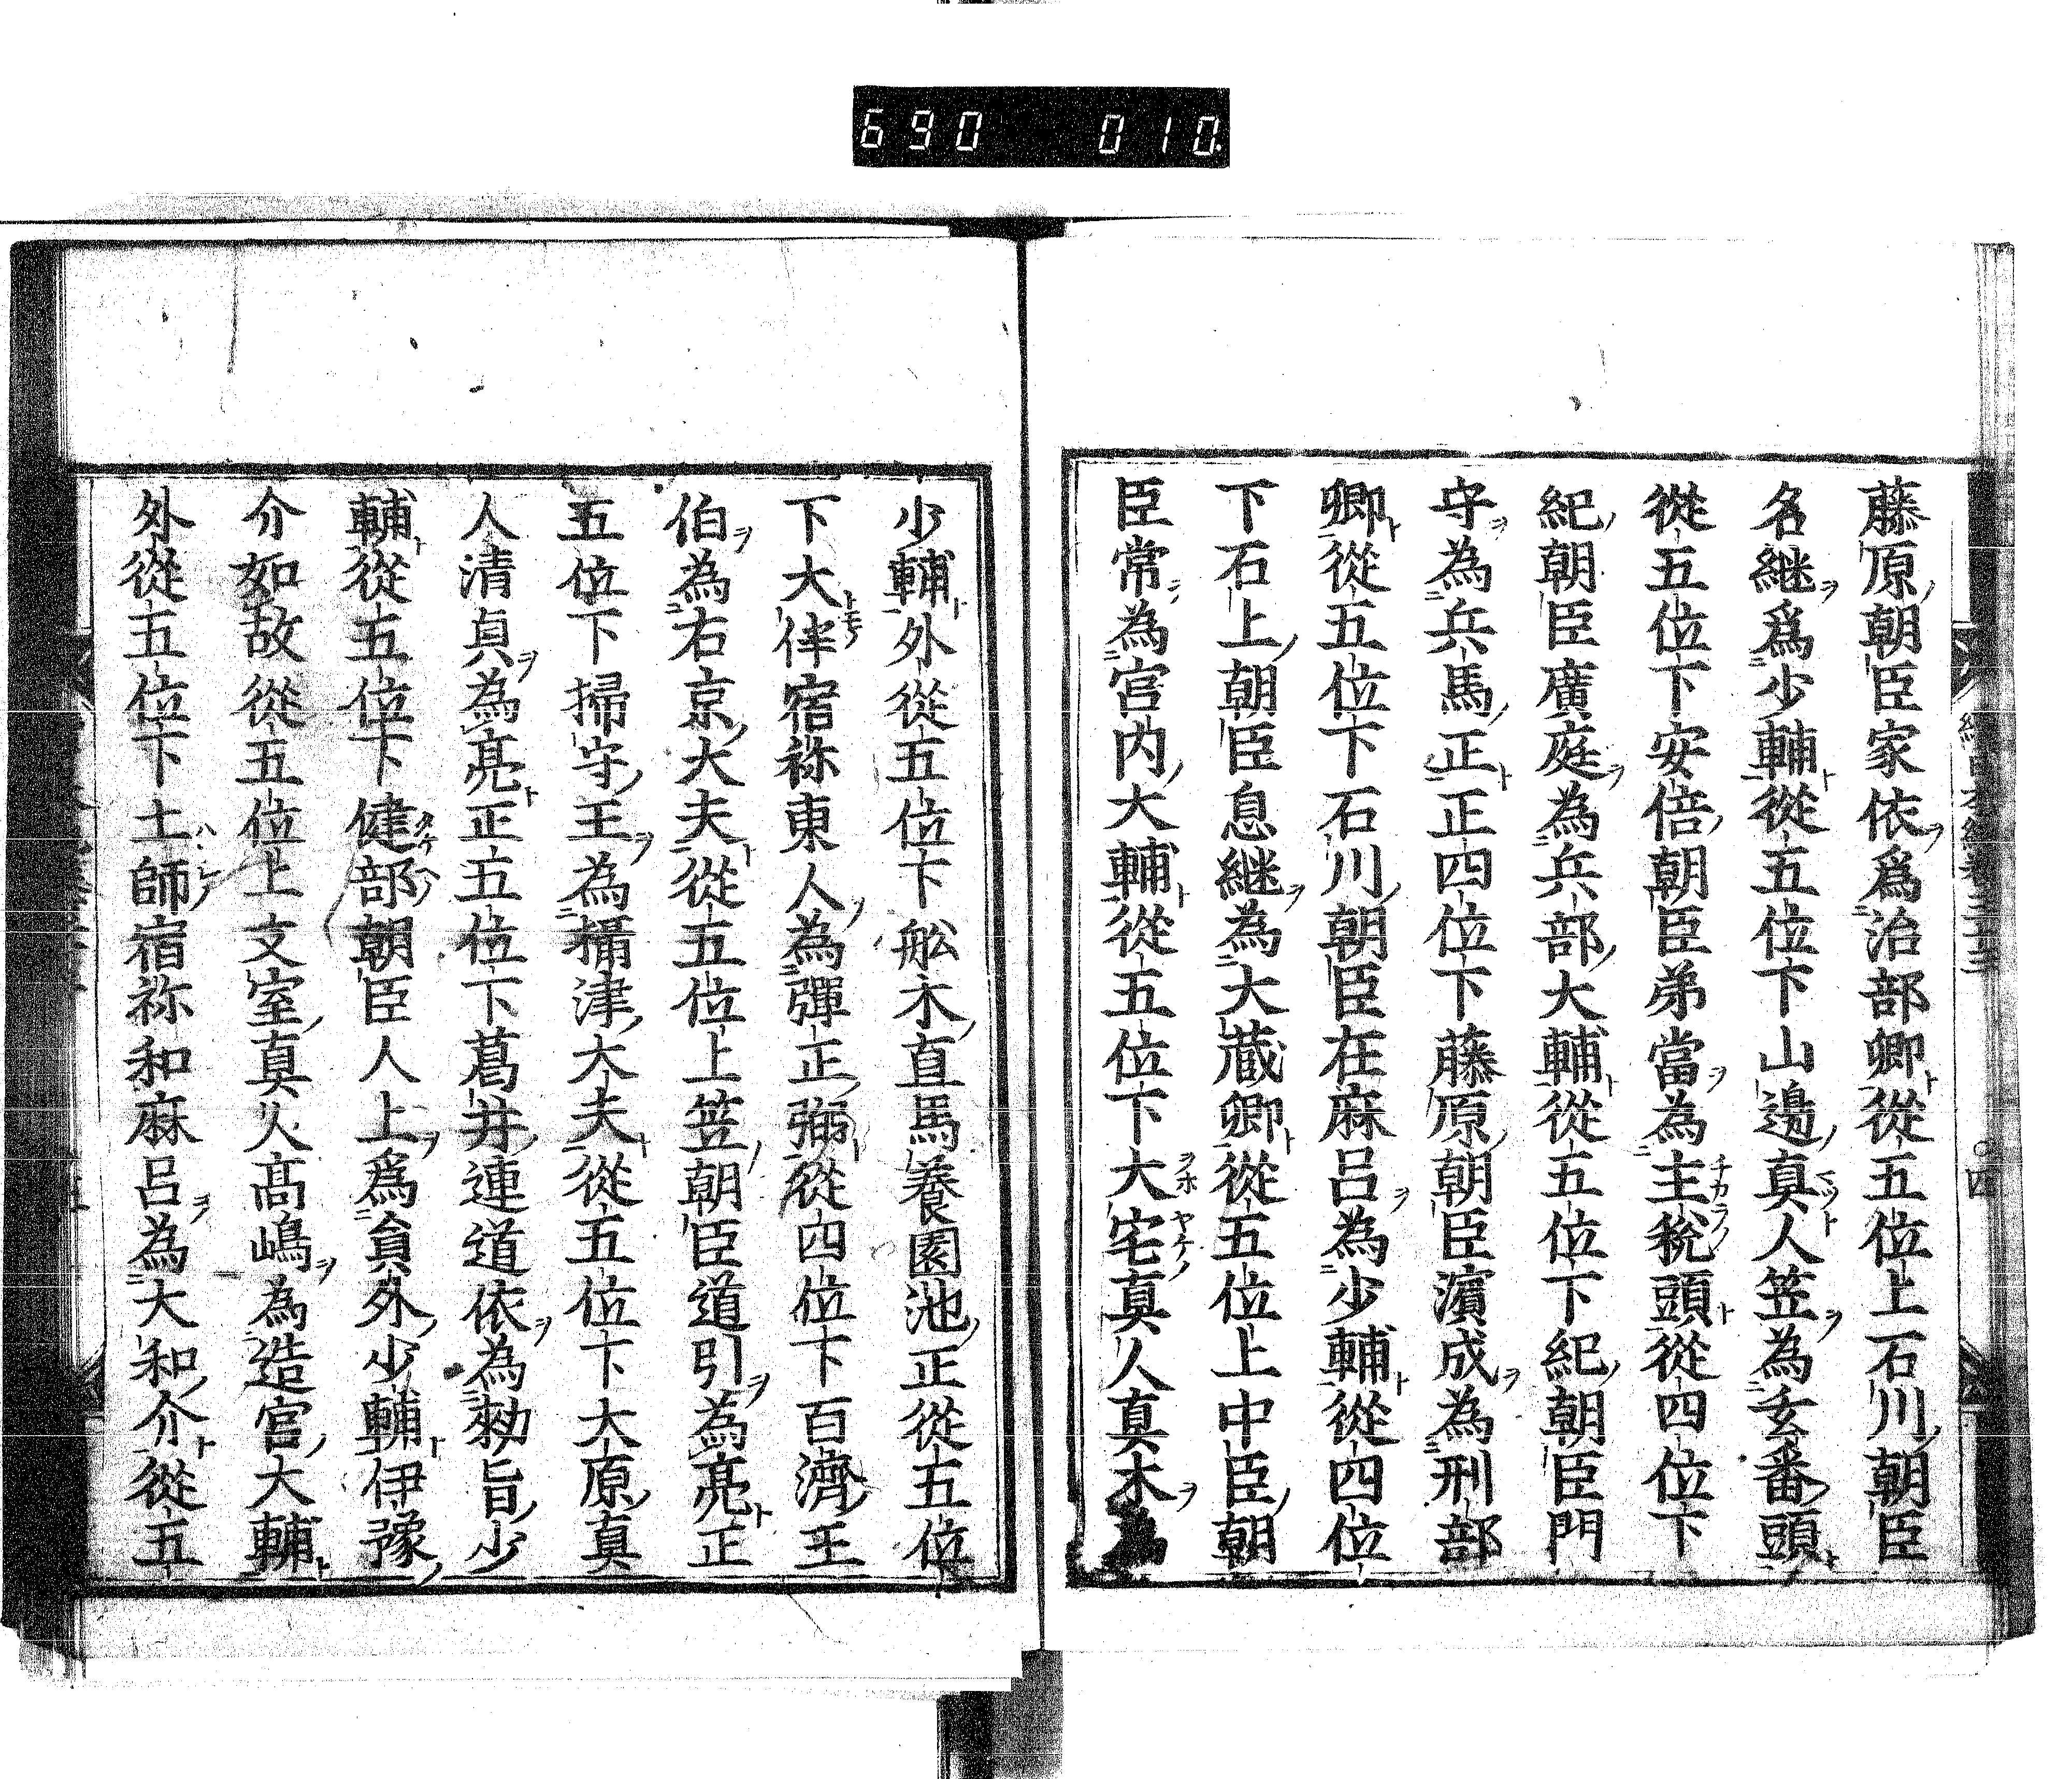 690 010
藤原朝臣家依爲治部卿從五位上石川朝臣
名継爲少輔從五位下山邊真人笠為玄番頭
從五位下安倍朝臣弟當為主税頭從四位下
紀朝臣廣庭為兵部大輔從五位下紀朝臣門
守為兵馬正正四位下藤原朝臣濱成為刑部
卿從五位下石川朝臣在麻呂為少輔從四位
下石上朝臣息継為大蔵卿從五位上中臣朝
臣常為宮内大輔從五位下大宅真人真木為
少輔外從五位下舩木直馬養園池正從五位
下大伴宿祢東人為彈正弼從四位下百濟王
伯為右京大夫從五位上笠朝臣道引為亮正
五位下掃守王為攝津大夫從五位下大原真
人清貞為亮正五位下葛井連道依為勅旨少
輔從五位下健部朝臣人上爲員外少輔伊豫
介如故從五位上文室真人髙嶋為造宮大輔
外從五位下土師宿祢和麻呂為大和介從五